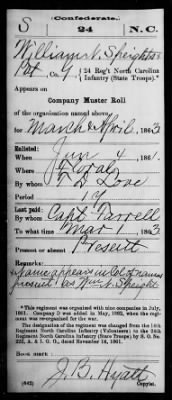 Confederate.
S 24 N.C.
William N. Speights
Pvt, Co. G, 24 Reg't North Carolina
Infantry (State Troops).*
Appears on
Company Muster Roll
of the organization named above,
for March & April, 1863
Enlisted:
When June 4, 1861.
Where
By whom T D Love
Period 1 Y
Last paid:
By whom Capt Farrell
To what time Mar 1, 1863
Present or absent Present
Remarks:
Name appears in Col of names
present as Wm N Speight
*This regiment was organized with nine companies in July,
1861. Company D was added in May, 1862, when the regi-
ment was re-organized for the war.
The designation of the regiment was changed from the 14th
Regiment North Carolina Infantry (Volunteers) to the 24th
Regiment North Carolina Infantry (State Troops) by S. O. No.
222, A. & I. G. O., dated November 14, 1861.
Book mark:
J. B. Hyatt
(642) Copyist.